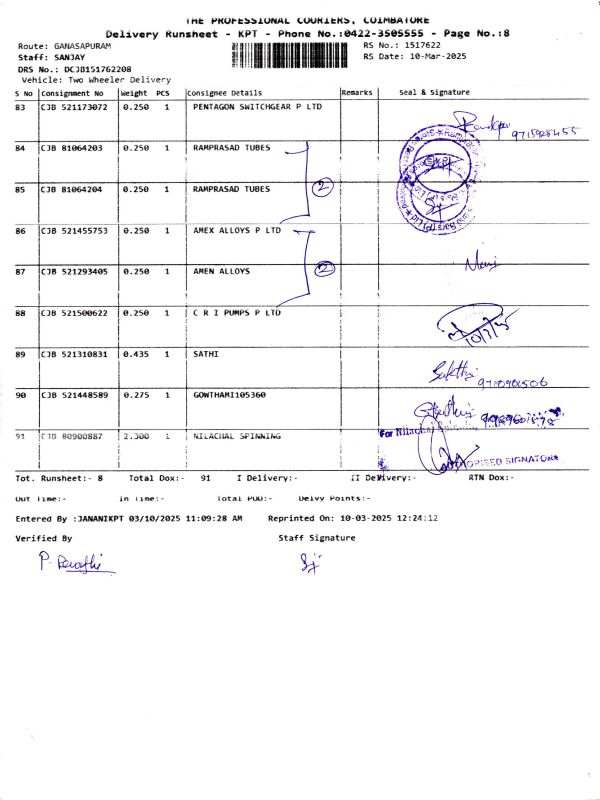 THE PROFESSIONAL COURIERS, COIMBATORE
Delivery Runsheet - KPT - Phone No.:0422-3505555 - Page No.:8
Route: GANASAPURAM RS No.: 1517622
Staff: SANJAY RS Date: 10-Mar-2025
DRS No.: DCJB151762208
Vehicle: Two Wheeler Delivery
S No Consignment No Weight PCS Consignee Details Remarks Seal & Signature
83 CJB 521173072 0.250 1 PENTAGON SWITCHGEAR P LTD
84 CJB 81064203 0.250 1 RAMPRASAD TUBES
85 CJB 81064204 0.250 1 RAMPRASAD TUBES 2
86 CJB 521455753 0.250 1 AMEX ALLOYS P LTD
87 CJB 521293405 0.250 1 AMEN ALLOYS 2
88 CJB 521500622 0.250 1 C R I PUMPS P LTD
89 CJB 521310831 0.435 1 SATHI
90 CJB 521448589 0.275 1 GOWTHAMI105360
For Nilachal
91 CJB 80900887 2.300 1 NILACHAL SPINNING
Tot. Runsheet:- 8 Total Dox:- 91 I Delivery:- II Delivery:- RTN Dox:-
Out Time:- In Time:- Total POD:- Delvy Points:-
Entered By :JANANIKPT 03/10/2025 11:09:28 AM Reprinted On: 10-03-2025 12:24:12
Verified By Staff Signature